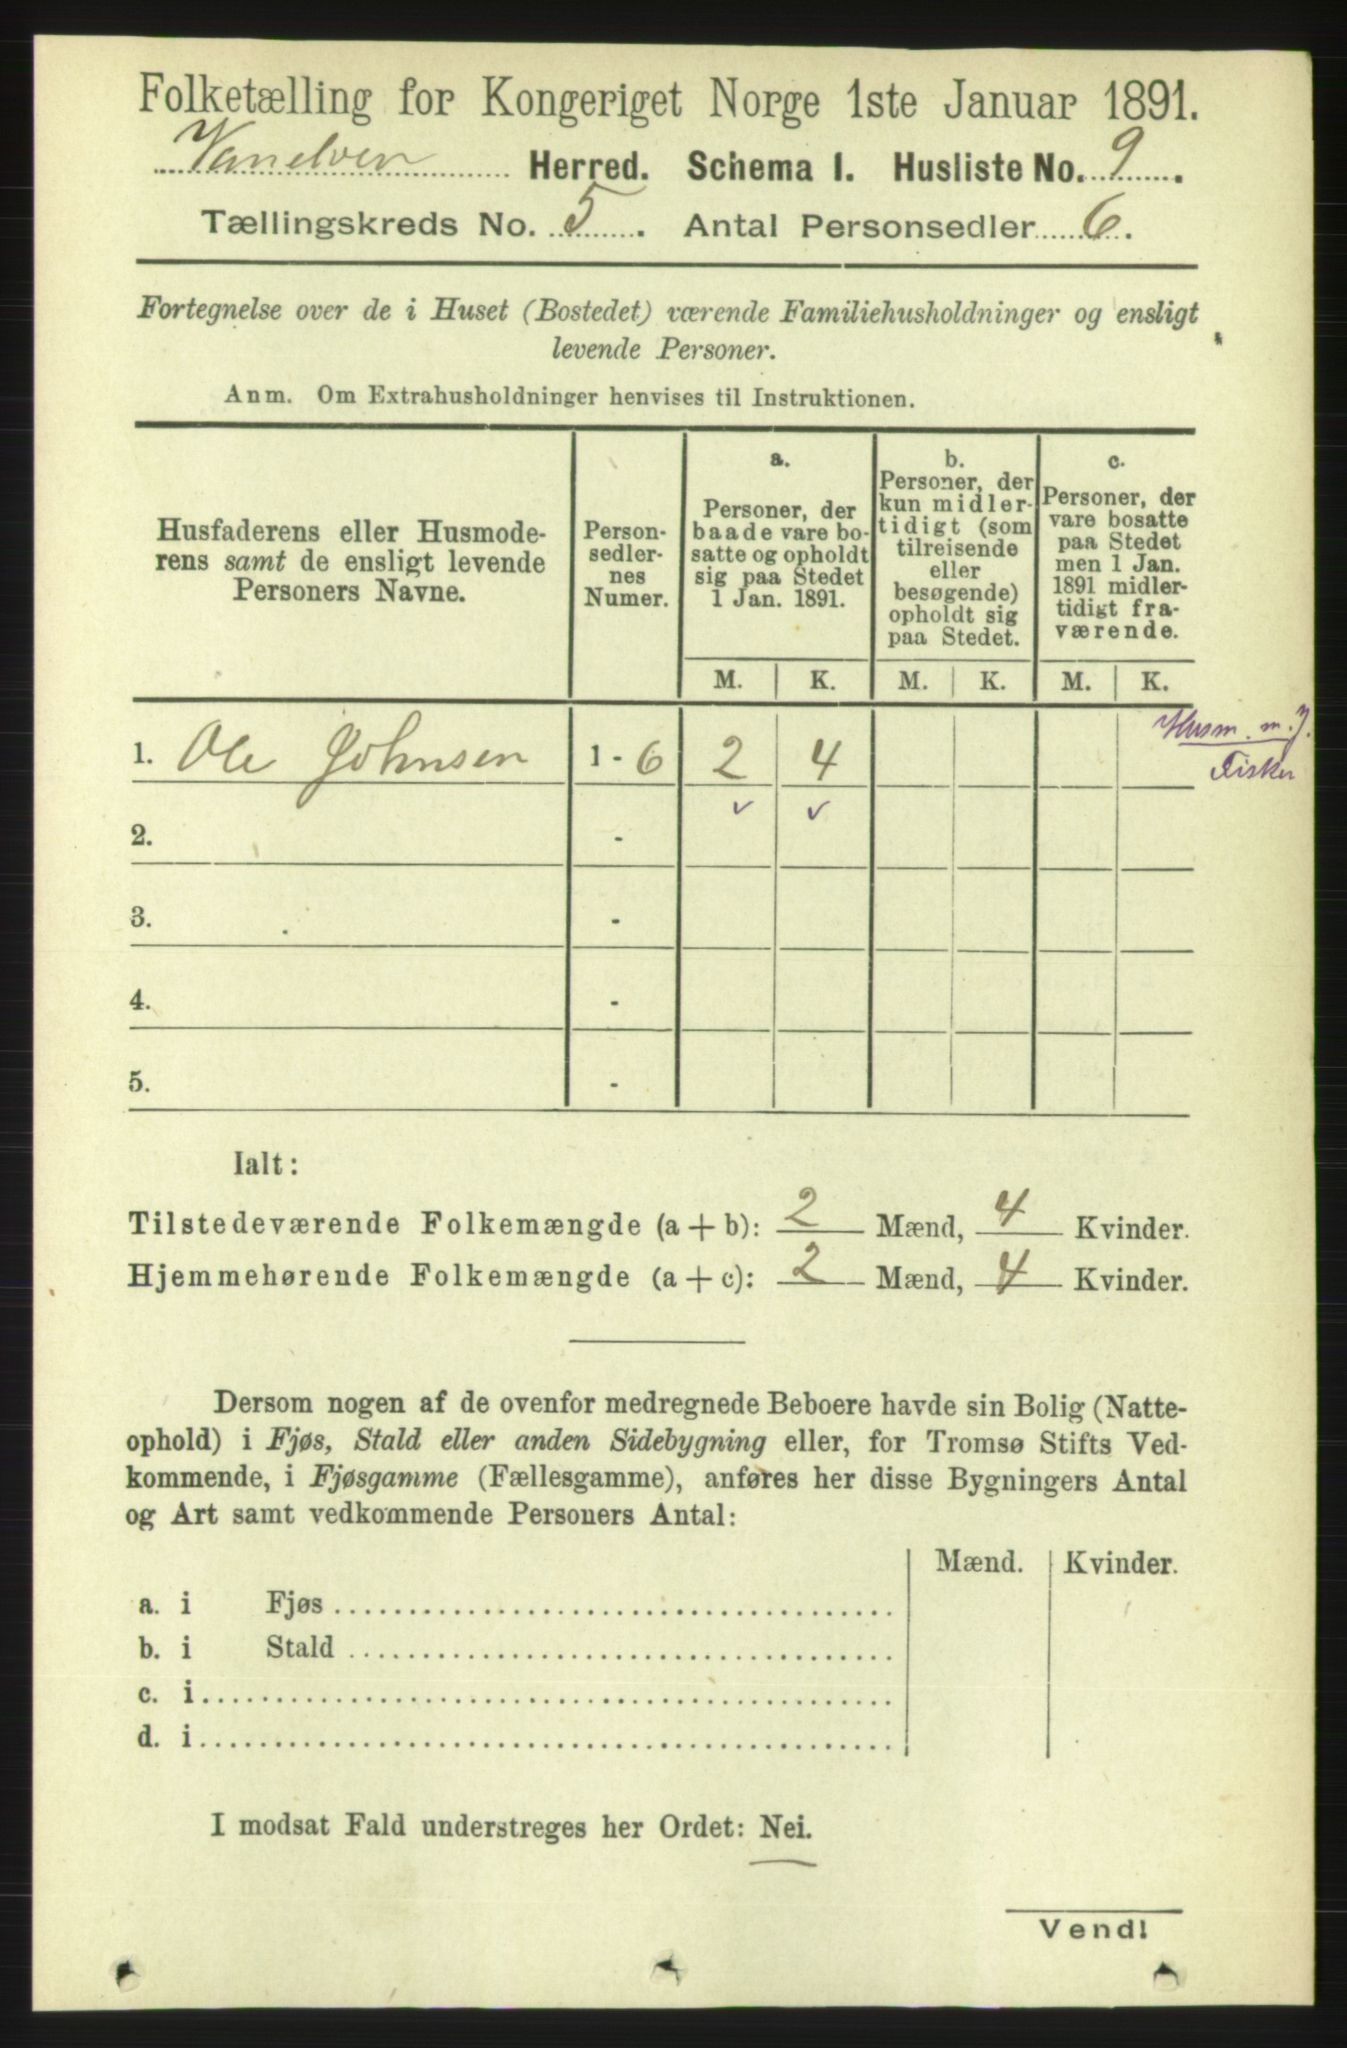 Folketælling for Kongeriget Norge 1ste Januar 1891.
Vanelven Herred. Schema I. Husliste No. 9.
Tællingskreds No. 5. Antal Personsedler 6.
Fortegnelse over de i Huset (Bostedet) værende Familiehusholdninger og ensligt
levende Personer.
Anm. Om Extrahusholdninger henvises til Instruktionen.
Husfaderens eller Husmode-
rens samt de ensligt levende
Personers Navne.
Person-
sedler-
nes
Numer.
a.
Personer, der
baade vare bo-
satte og opholdt
sig paa Stedet
1 Jan. 1891.
b.
Personer, der
kun midler-
tidigt (som
tilreisende
eller
besøgende)
opholdt sig
paa Stedet.
c.
Personer, der
vare bosatte
paa Stedet
men 1 Jan.
1891 midler-
tidigt fra-
værende.
M. K. M. K. M. K.
1. Ole Johnsen 1 - 6 2 4
Husm. m. J.
Fisker
2. -
3. -
4. -
5. -
Ialt:
Tilstedeværende Folkemængde (a + b): 2 Mænd, 4 Kvinder.
Hjemmehørende Folkemængde (a + c): 2 Mænd, 4 Kvinder.
Dersom nogen af de ovenfor medregnede Beboere havde sin Bolig (Natte-
ophold) i Fjøs, Stald eller anden Sidebygning eller, for Tromsø Stifts Ved-
kommende, i Fjøsgamme (Fællesgamme), anføres her disse Bygningers Antal
og Art samt vedkommende Personers Antal:
Mænd. Kvinder.
a. i Fjøs
b. i Stald
c. i
d. i
I modsat Fald understreges her Ordet: Nei.
Vend!